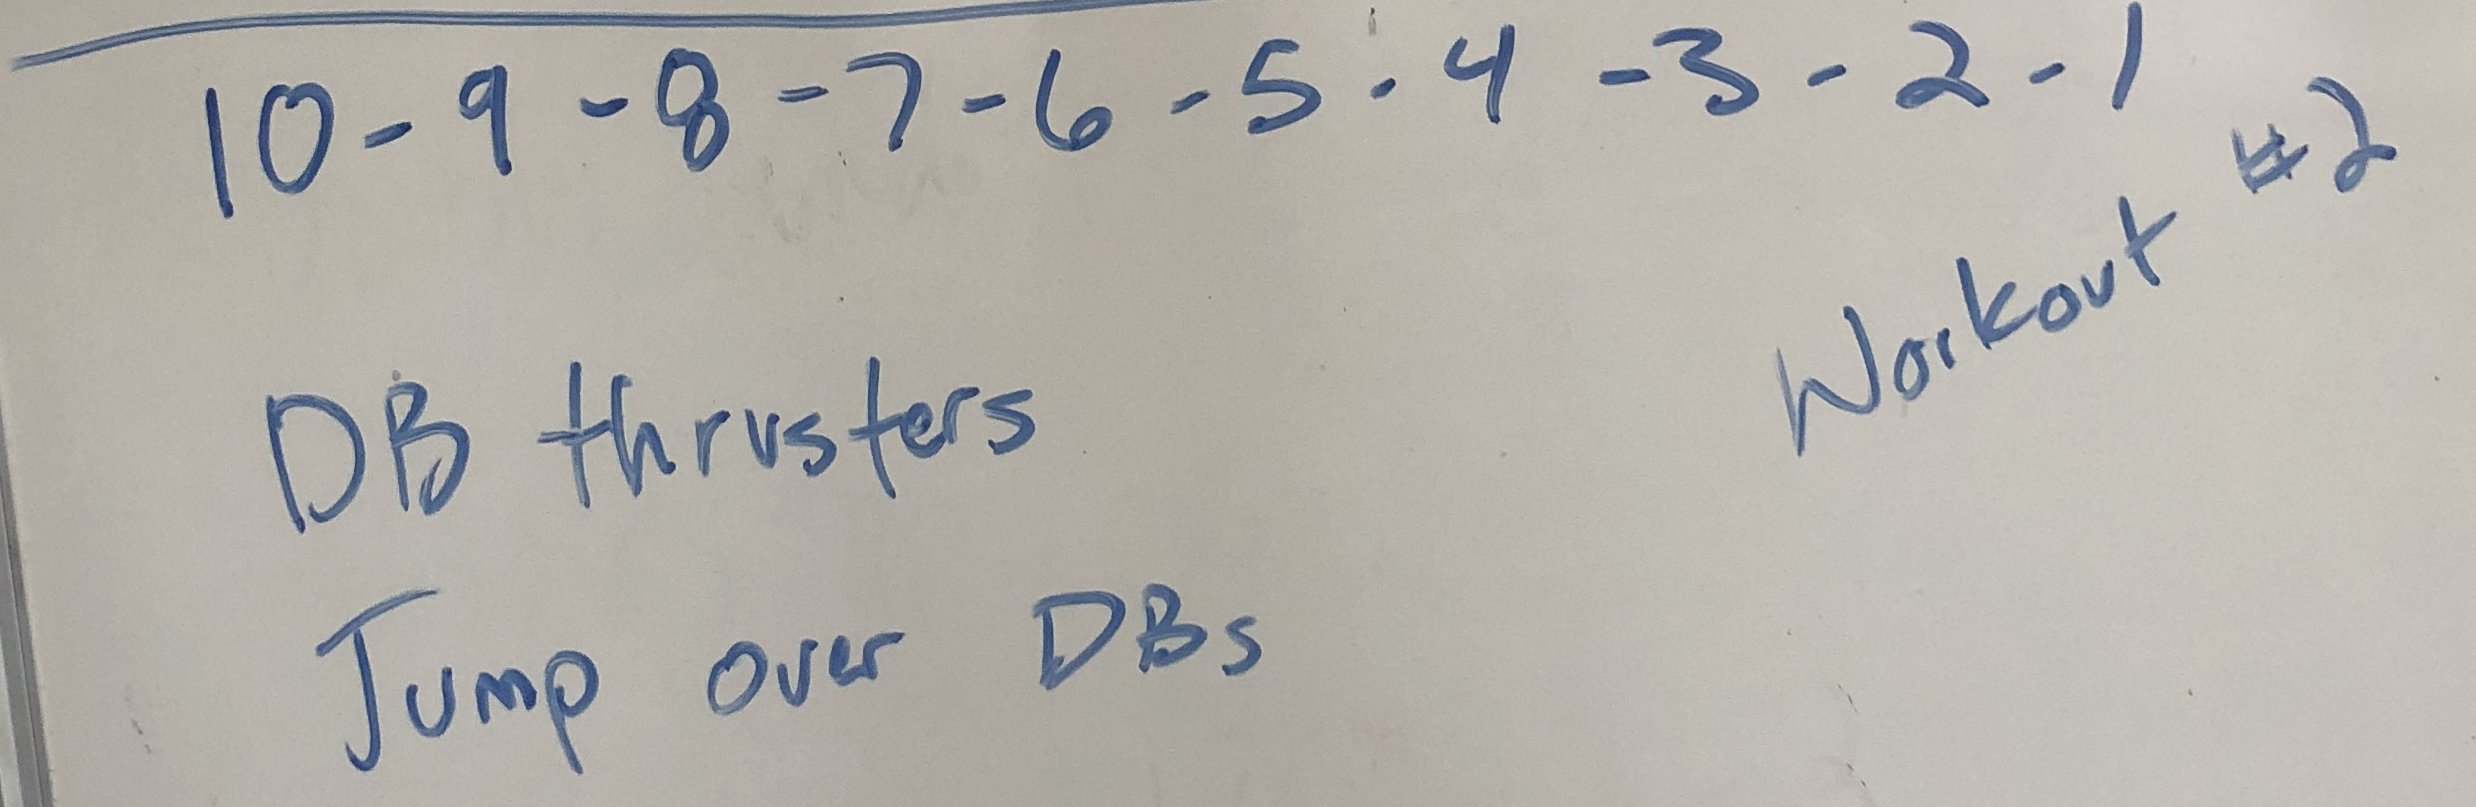 10-9-8-7-6-5-4-3-2-1
Workout #2
DB thrusters
Jump over DBs